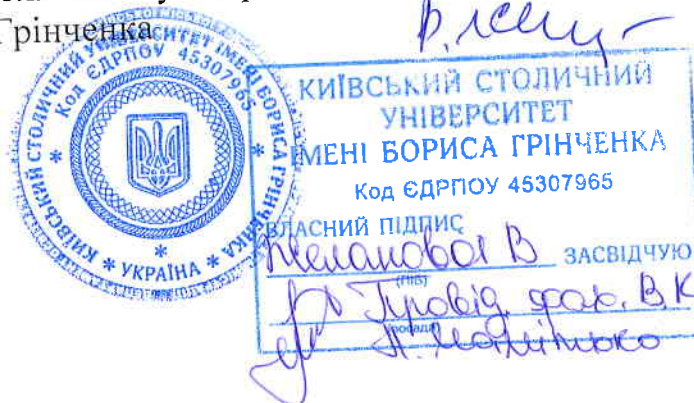 Грінченка
КИЇВСЬКИЙ СТОЛИЧНИЙ УНІВЕРСИТЕТ ІМЕНІ БОРИСА ГРІНЧЕНКА
* УКРАЇНА *
Код ЄДРПОУ 45307965
КИЇВСЬКИЙ СТОЛИЧНИЙ
УНІВЕРСИТЕТ
ІМЕНІ БОРИСА ГРІНЧЕНКА
Код ЄДРПОУ 45307965
ВЛАСНИЙ ПІДПИС
В ЗАСВІДЧУЮ
(ПІБ)
Провід. фах. В.К
(посада)